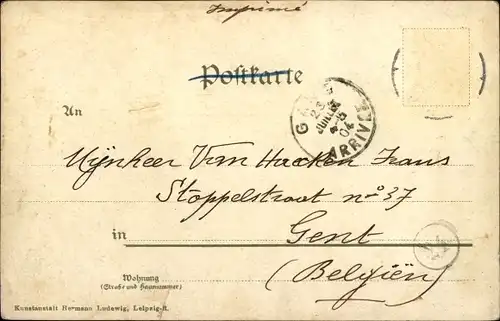 Imprimé
Postkarte
An
GAND
23
JUILLET
04
ARRIVÉE
Mijnheer Van Haeken Frans
Stoppelstraat nº 37
in Gent
(Belgiën)
Wohnung
(Straße und Hausnummer)
Kunstanstalt Hermann Ludewig, Leipzig-R.